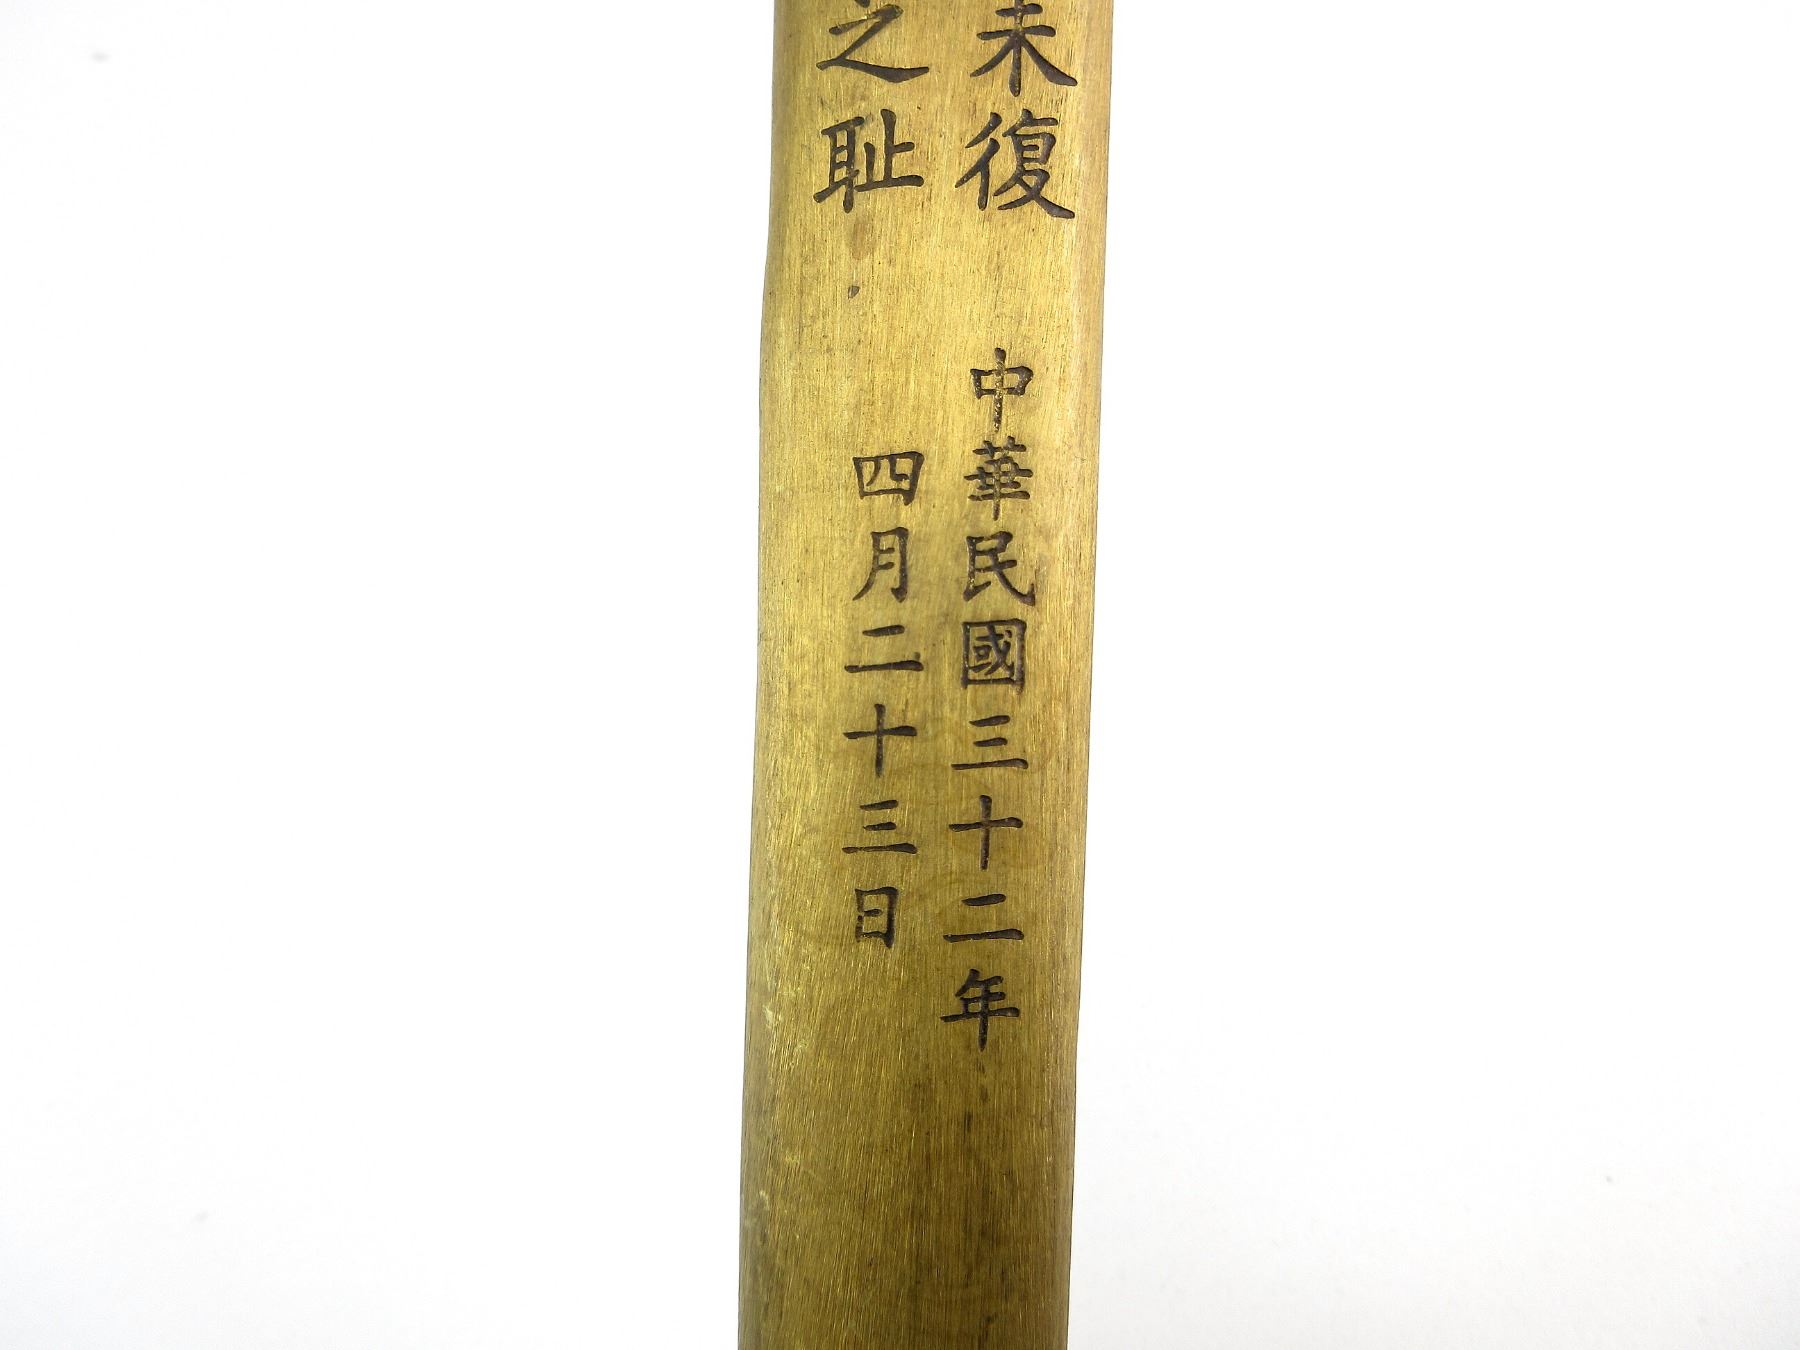 未復
之耻
中華民國三十二年
四月二十三日